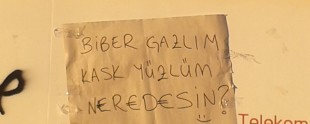 BİBER GAZLIM
KASK YÜZLÜM
NEREDESİN?
Telekom